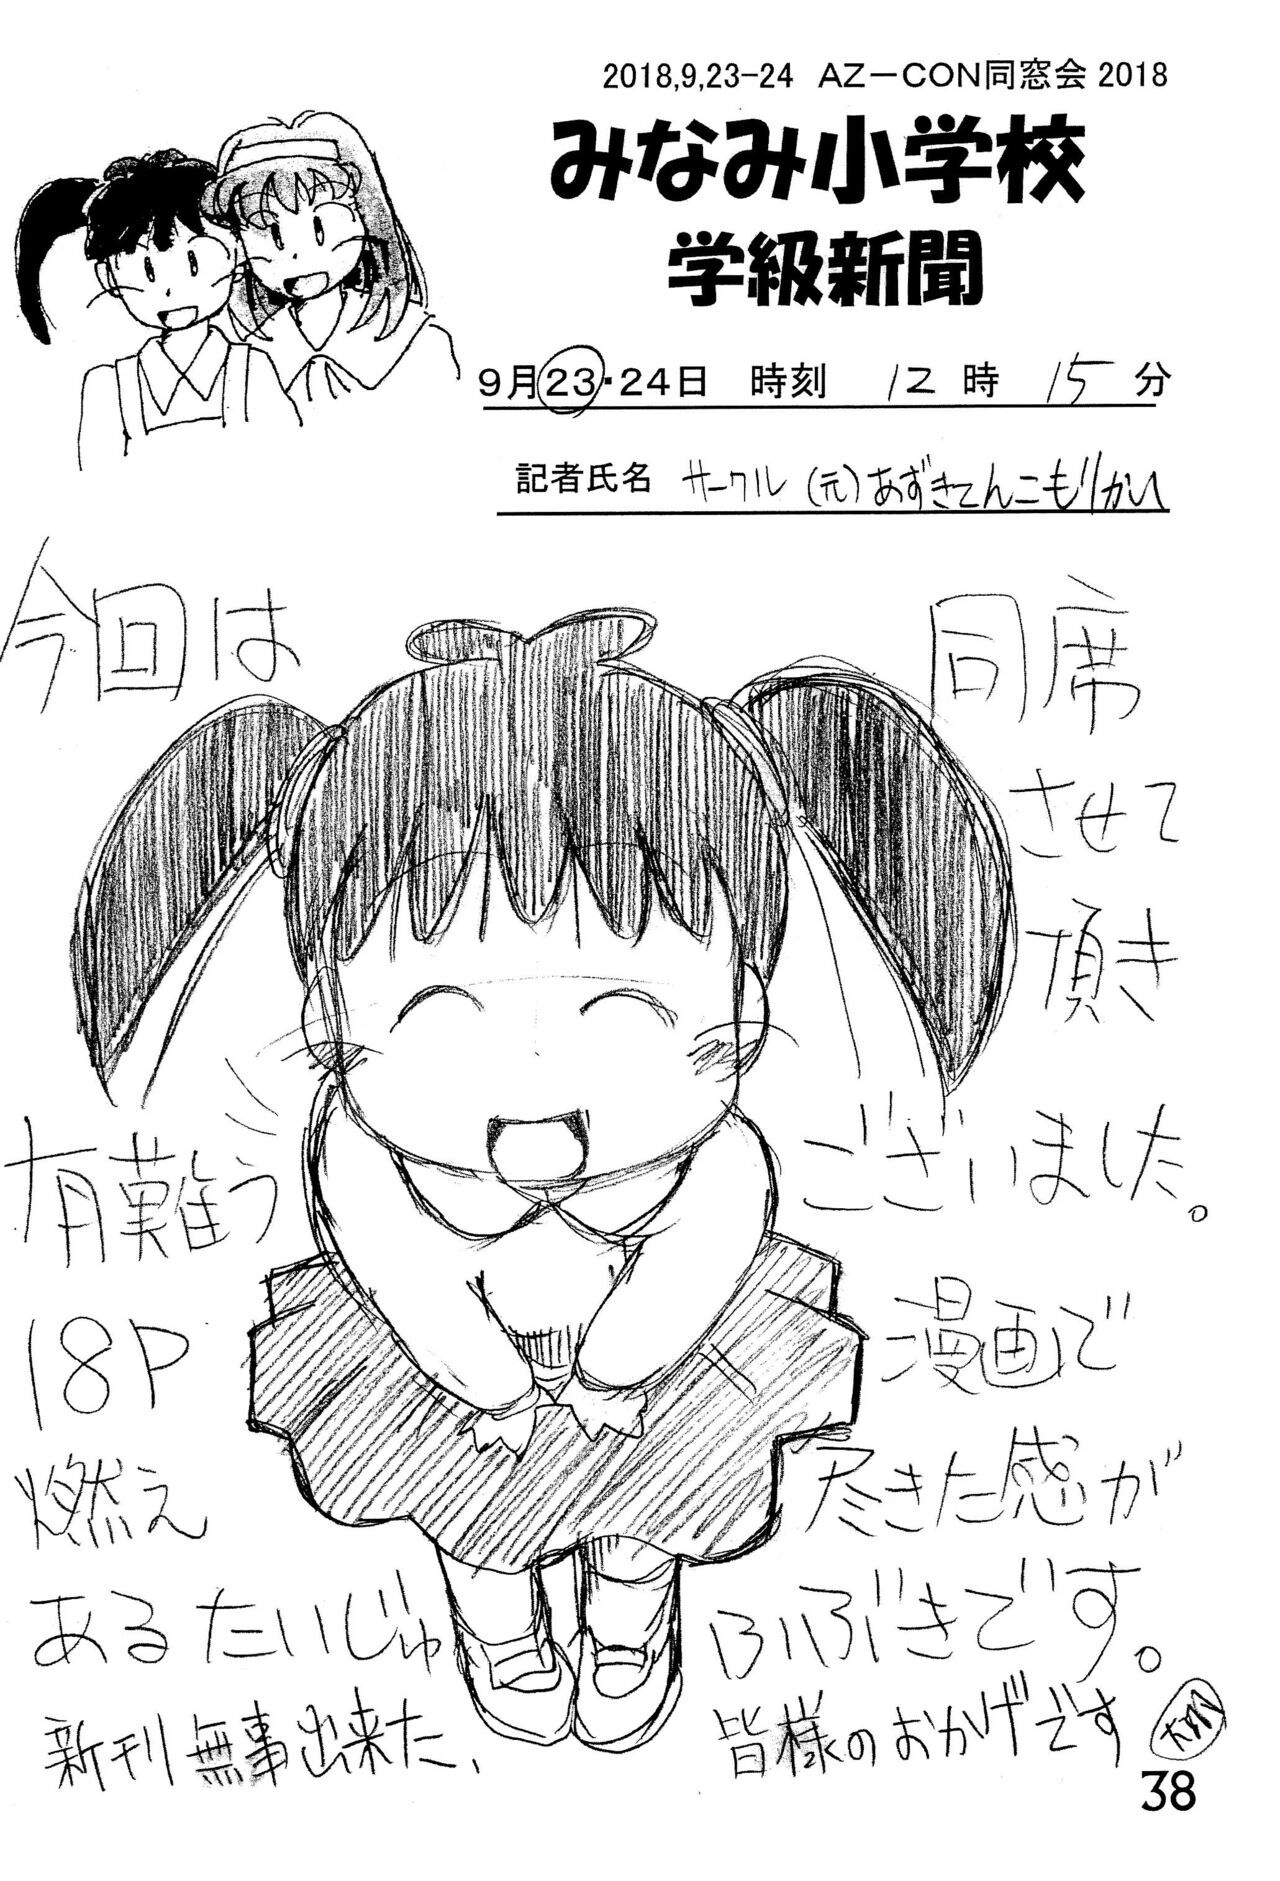 2018,9,23-24 AZーCON同窓会 2018
みなみ小学校
学級新聞
9月23・24日 時刻 12時 15分
記者氏名 サークル (元)あずきてんこもりかい
今回は 同席
させて
頂き
有難う ございました。
18P 漫画で
燃え 尽きた感が
あるたいじゅ ふぶきです。
新刊無事出来た、 皆様のおかげです
38